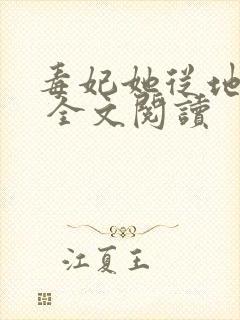 毒妃她從地
全文閱讀
江夏王